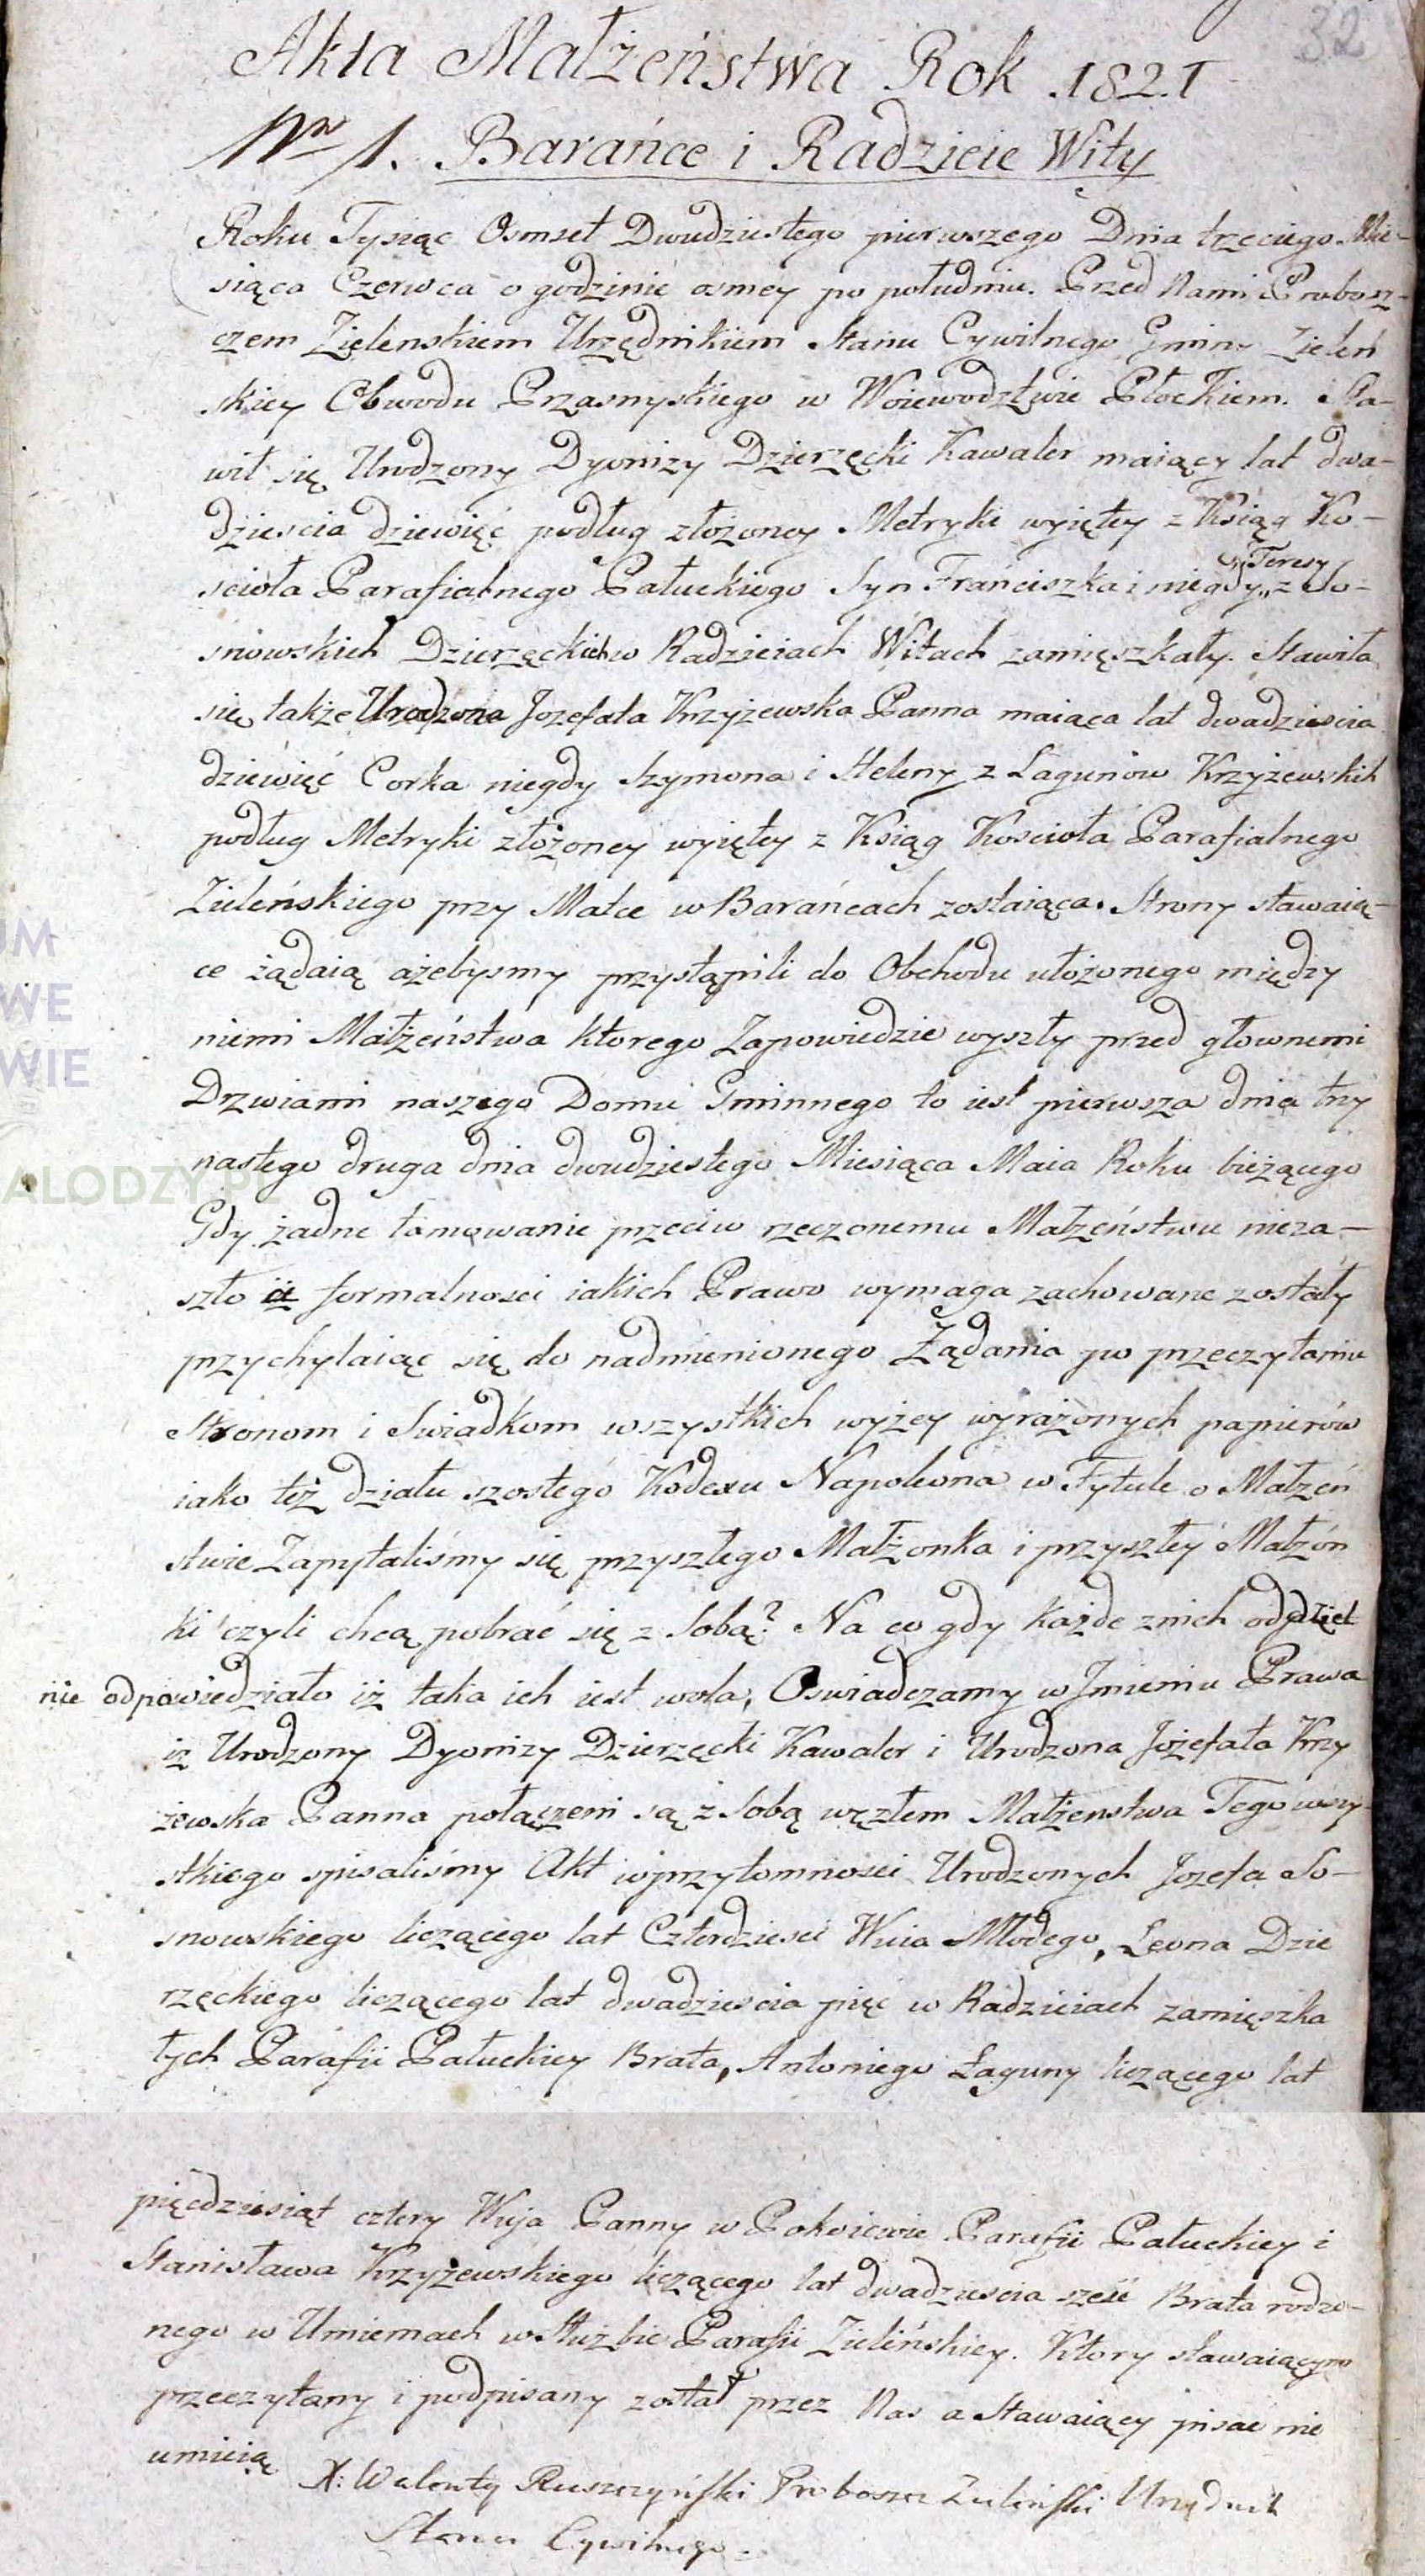 32
Akta Małżeństwa Rok 1821
Nro 1. Barańce i Radzicie Wity
Roku Tysiąc Osmset Dwudziestego pierwszego Dnia trzeciego Mie-
siąca Czerwca o godzinie osmey po południu. Przed Nami Probosz-
czem Zielenskiem Urzędnikiem Stanu Cywilnego Gminy Zieleń
skiey Obwodu Przasnyskiego w Woiewodztwie Płockiem. Sta-
wił się Urodzony Dyonizy Dzierzęcki Kawaler maiący lat dwa-
dziescia dziewięć podług złożoney Metryki wyiętey z Ksiąg Ko-
scioła Parafialnego Pałuckiego Syn Franciszka i niegdy „Teresy„ z So-
snowskich Dzierzęckich w Radziciach Witach zamięszkały. Stawiła
się także Urodzona Jozefata Krzyżewska Panna maiąca lat dwadziescia
dziewięć Corka niegdy Szymona i Heleny z Łagunów Krzyżewskich
podług Metryki złożoney wyiętey z Ksiąg Koscioła Parafialnego
Zieleńskiego przy Matce w Barańcach zostaiąca. Strony stawaią-
ce żądaią ażebysmy przystąpili do Obchodu ułożonego między
niemi Małżeństwa ktorego Zapowiedzie wyszły przed głownemi
Drzwiami naszego Domu Gminnego to iest pierwsza dnia trzy
nastego druga dnia dwudziestego Miesiąca Maia Roku bieżącego
Gdy żadne tamowanie przeciw rzeczonemu Małżeństwu nieza-
szło a formalnosci iakich Prawo wymaga zachowane zostały
przychylaiąc się do nadmienionego Żądania po przeczytaniu
Stronom i Swiadkom wszystkich wyżey wyrażonych papierów
iako też działu szostego Kodexu Napoleona w Tytule o Małżeń
stwie Zapytaliśmy się przyszłego Małżonka i przyszłey Małżon
ki czyli chcą pobrać się z Sobą? Na co gdy każde z nich oddziel
nie odpowiedziało iż taka ich iest wola, Oswiadczamy w Jmieniu Prawa
iz Urodzony Dyonizy Dzierzęcki Kawaler i Urodzona Jozefata Krzy
żewska Panna połączeni są z Sobą węzłem Małżenstwa Tego wszy-
stkiego spisaliśmy Akt w przytomnosci Urodzonych Jozefa So-
snowskiego liczącego lat Czterdziesci Wuia Młodego, Leona Dzie
rzęckiego liczącego lat dwadziescia pięć w Radziciach zamięszka
łych Parafii Pałuckiey Brata, Antoniego Łaguny liczącego lat
pięćdziesiąt cztery Wuja Panny w Parafii Pałuckiey i
Stanisława Krzyżewskiego liczącego lat dwadziescia sześć Brata rodzo-
nego w Umiemach w Służbie Parafii Zielińskiey. Ktory stawaiącym
przeczytany i podpisany został przez Nas a Stawaiący pisać nie
umieią
X: Walenty Ruszczyński Proboszcz Zieliński Urzędnik
Stanu Cywilnego.
UM
WE
WIE
ALODZY.PL